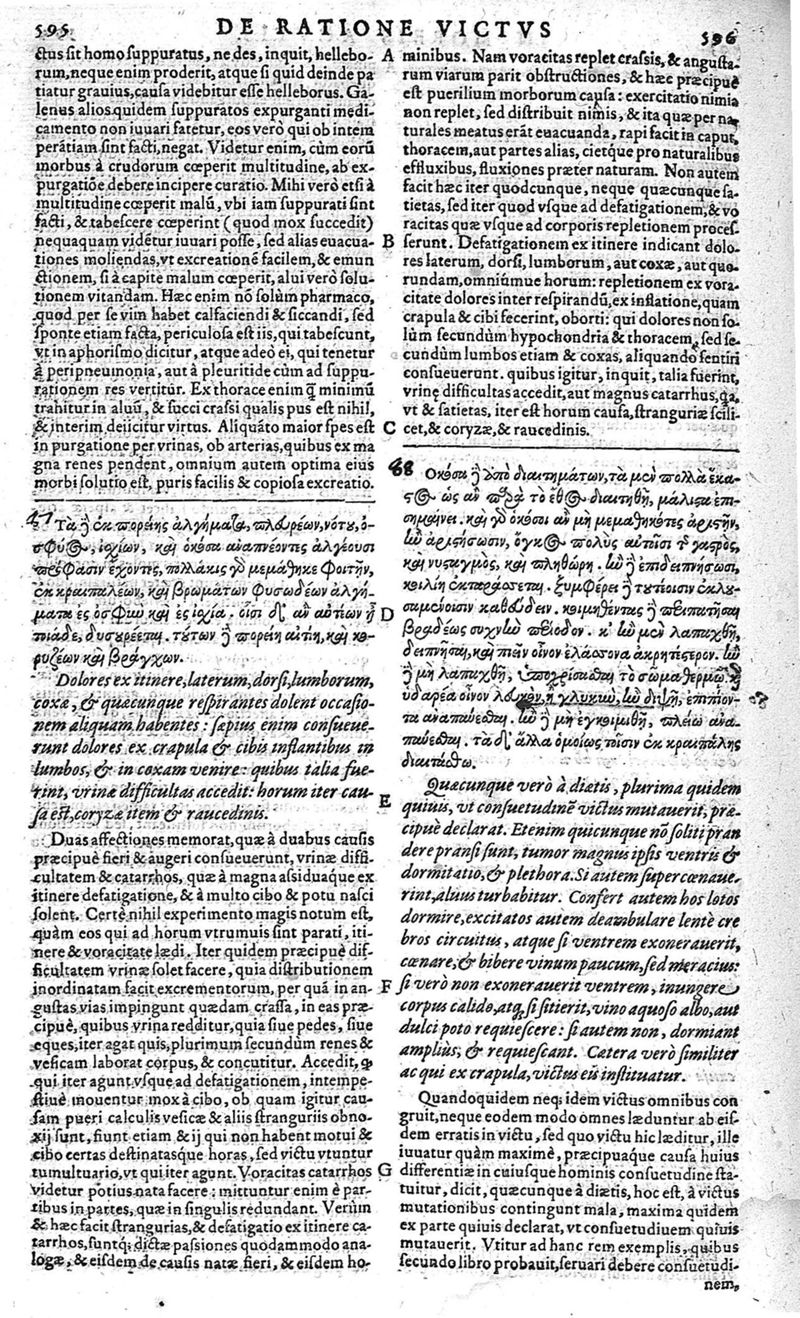 595
DE RATIONE VICTVS
596
ctus sit homo suppuratus, ne des, inquit, hellebo-
rum, neque enim proderit, atque si quid deinde pa
tiatur grauius, causa videbitur esse helleborus. Ga-
lenus alios quidem suppuratos expurganti medi-
camento non iuuari fatetur, eos verò qui ob intem
perãtiam sint facti, negat. Videtur enim, cùm eorũ
morbus à crudorum cœperit multitudine, ab ex-
purgatiõe debere incipere curatio. Mihi verò etsi à
multitudine cœperit malũ, vbi iam suppurati sint
facti, & tabescere cœperint (quod mox succedit)
nequaquam videtur iuuari posse, sed alias euacua-
tiones moliendas, vt excreationẽ facilem, & emun
ctionem, si à capite malum cœperit, alui verò solu-
tionem vitandam. Hæc enim nõ solùm pharmaco,
quod per se vim habet calfaciendi & siccandi, sed
sponte etiam facta, periculosa est iis, qui tabescunt,
vt in aphorismo dicitur, atque adeò ei, qui tenetur
à peripneumonia, aut à pleuritide cùm ad suppu-
rationem res vertitur. Ex thorace enim q̃ minimũ
trahitur in aluũ, & succi crassi qualis pus est nihil,
& interim deiicitur virtus. Aliquãto maior spes est
in purgatione per vrinas, ob arterias, quibus ex ma
gna renes pendent, omnium autem optima eius
morbi solutio est, puris facilis & copiosa excreatio.
47 Τὰ ἢ ἐκ πορείης ἀλγήματα, πλευρέων, νότου, ὀ-
σφύος, ἰσχίων, καὶ ὁκόσα ἀναπνέοντες ἀλγέουσι
πρόφασιν ἔχοντες, πολλάκις γὸ μεμάθηκε φοιτῆν,
ἐκ κραιπαλέων, καὶ βρωμάτων φυσωδέων ἀλγή-
ματα ἐς ὀσφῦν καὶ ἐς ἰσχία. οἷσι δ' ἂν αὐτέων ᾖ
τοιάδε, δυσουρέεται. τουτων ἢ πορείη αἰτίη, καὶ κο-
ρυζέων καὶ βράγχων.
Dolores ex itinere, laterum, dorsi, lumborum,
coxæ, & quæcunque respirantes dolent occasio-
nem aliquam habentes: sæpius enim consueue-
runt dolores ex crapula & cibis inflantibus in
lumbos, & in coxam venire: quibus talia fue-
rint, vrinæ difficultas accedit: horum iter cau-
sa est, coryzæ item & raucedinis.
Duas affectiones memorat, quæ à duabus causis
præcipuè fieri & augeri consueuerunt, vrinæ diffi-
cultatem & catarrhos, quæ à magna assiduaque ex
itinere defatigatione, & à multo cibo & potu nasci
solent. Certè nihil experimento magis notum est,
quàm eos qui ad horum vtrumuis sint parati, iti-
nere & voracitate lædi. Iter quidem præcipuè dif-
ficultatem vrinæ solet facere, quia distributionem
inordinatam facit excrementorum, per quã in an-
gustas vias impingunt quædam crassa, in eas præ-
cipuè, quibus vrina redditur, quia siue pedes, siue
eques, iter agat quis, plurimum secundùm renes &
vesicam laborat corpus, & concutitur. Accedit, q̃
qui iter agunt vsque ad defatigationem, intempe-
stiuè mouentur mox à cibo, ob quam igitur cau-
sam pueri calculis vesicæ & aliis stranguriis obno-
xij sunt, fiunt etiam & ij qui non habent motui &
cibo certas destinatasque horas, sed victu vtuntur
tumultuario, vt qui iter agunt. Voracitas catarrhos
videtur potius nata facere: mittuntur enim è par-
tibus in partes, quæ in singulis redundant. Verùm
& hæc facit strangurias, & defatigatio ex itinere ca-
tarrhos, suntq; dictæ passiones quodammodo ana-
logæ, & eisdem de causis natæ fieri, & eisdem ho-
A
B
C
D
E
F
G
minibus. Nam voracitas replet crassis, & angusta-
rum viarum parit obstructiones, & hæc præcipuè
est puerilium morborum causa: exercitatio nimia
non replet, sed distribuit nimis, & ita quæ per na-
turales meatus erãt euacuanda, rapi facit in caput,
thoracem, aut partes alias, cietque pro naturalibus
effluxibus, fluxiones præter naturam. Non autem
facit hæc iter quodcunque, neque quæcunque sa-
tietas, sed iter quod vsque ad defatigationem, & vo
racitas quæ vsque ad corporis repletionem proces-
serunt. Defatigationem ex itinere indicant dolo-
res laterum, dorsi, lumborum, aut coxæ, aut quo-
rundam, omniúmue horum: repletionem ex vora-
citate dolores inter respirandũ, ex inflatione, quam
crapula & cibi fecerint, oborti: qui dolores non so-
lùm secundùm hypochondria & thoracem, sed se-
cundùm lumbos etiam & coxas, aliquando sentiri
consueuerunt. quibus igitur, inquit, talia fuerint,
vrinę difficultas accedit, aut magnus catarrhus, q̃a,
vt & satietas, iter est horum causa, stranguriæ scili-
cet, & coryzæ, & raucedinis.
48 Ὁκόσα ἢ ὑπὸ διαιτημάτων, τὰ μὲν πολλὰ ἕκα-
στος ὡς ἂν παρὰ τὸ ἔθος διαιτηθῇ, μάλιστα ἐπι-
σημαίνει. καὶ γὸ ὁκόσοι ἂν μὴ μεμαθηκότες ἀριστῆν,
ἢν ἀριστήσωσιν, ὄγκος πολὺς αὐτοῖσι τ̃ γαστρὸς,
καὶ νυσταγμὸς, καὶ πληθώρη. ἢν ἢ ἐπιδειπνήσωσι,
κοιλίη ἐκταράσσεται. ξυμφέρει ἢ τουτέοισιν ἐκλου-
σαμένοισιν καθεύδειν. κοιμηθέντας ἢ περιπατῆσαι
βραδέως συχνὴν περίοδον. κ' ἢν μὲν λαπαχθῇ,
δειπνῆσαι, καὶ πιεῖν οἶνον ἐλάσσονα ἀκρητέστερον. ἢν
ἢ μὴ λαπαχθῇ, ὑποχρίσασθαι τὸ σῶμα θερμῷ. καὶ
ὑδαρέα οἶνον λευκὸν, ἢ γλυκὺν, ἢν διψῇ, ἐπιπίον-
τα ἀναπαύεσθαι. ἢν ἢ μὴ ἐγκοιμηθῇ, πλείω ἀνα-
παύεσθαι. τὰ δ' ἄλλα ὁμοίως τοῖσιν ἐκ κραιπάλης
διαιτάσθω.
Quæcunque verò à diætis, plurima quidem
quiuis, vt consuetudinẽ victus mutauerit, præ-
cipuè declarat. Etenim quicunque nõ soliti pran
dere pransi sunt, tumor magnus ipsis ventris &
dormitatio, & plethora. Si autem supercœnaue-
rint, aluus turbabitur. Confert autem hos lotos
dormire, excitatos autem deambulare lentè cre
bros circuitus, atque si ventrem exonerauerit,
cœnare, & bibere vinum paucum, sed meracius:
si verò non exonerauerit ventrem, inungere
corpus calido, atq; si sitierit, vino aquoso albo, aut
dulci poto requiescere: si autem non, dormiant
ampliùs, & requiescant. Cætera verò similiter
ac qui ex crapula, victus eis instituatur.
Quandoquidem neq; idem victus omnibus con
gruit, neque eodem modo omnes læduntur ab eis-
dem erratis in victu, sed quo victu hic læditur, ille
iuuatur quàm maximè, præcipuaque causa huius
differentiæ in cuiusque hominis consuetudine sta-
tuitur, dicit, quæcunque à diætis, hoc est, à victus
mutationibus contingunt mala, maxima quidem
ex parte quiuis declarat, vt consuetudiuem quiuis
mutauerit. Vtitur ad hanc rem exemplis, quibus
secundo libro probauit, seruari debere consuetudi-
nem,